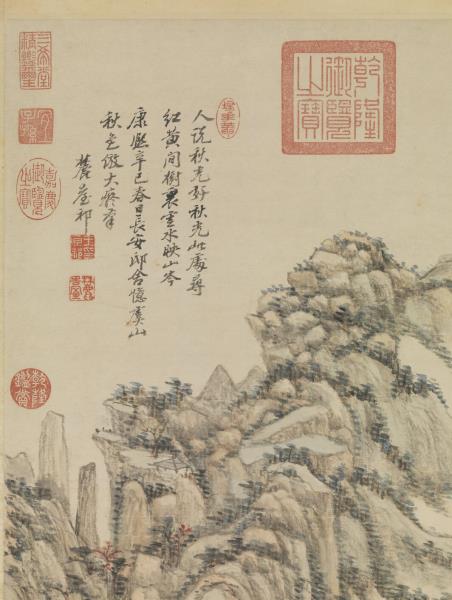 乾隆
御覽
之寶
掃華庵
人說秋光好秋光此處尋
紅黃間樹裏雲水映山岑
康熙辛巳春日長安邸舍憶虞山
秋色倣大癡筆
麓臺祁
三希堂
精鑑璽
宜子孫
嘉慶
御覽
之寶
乾隆
鑑賞